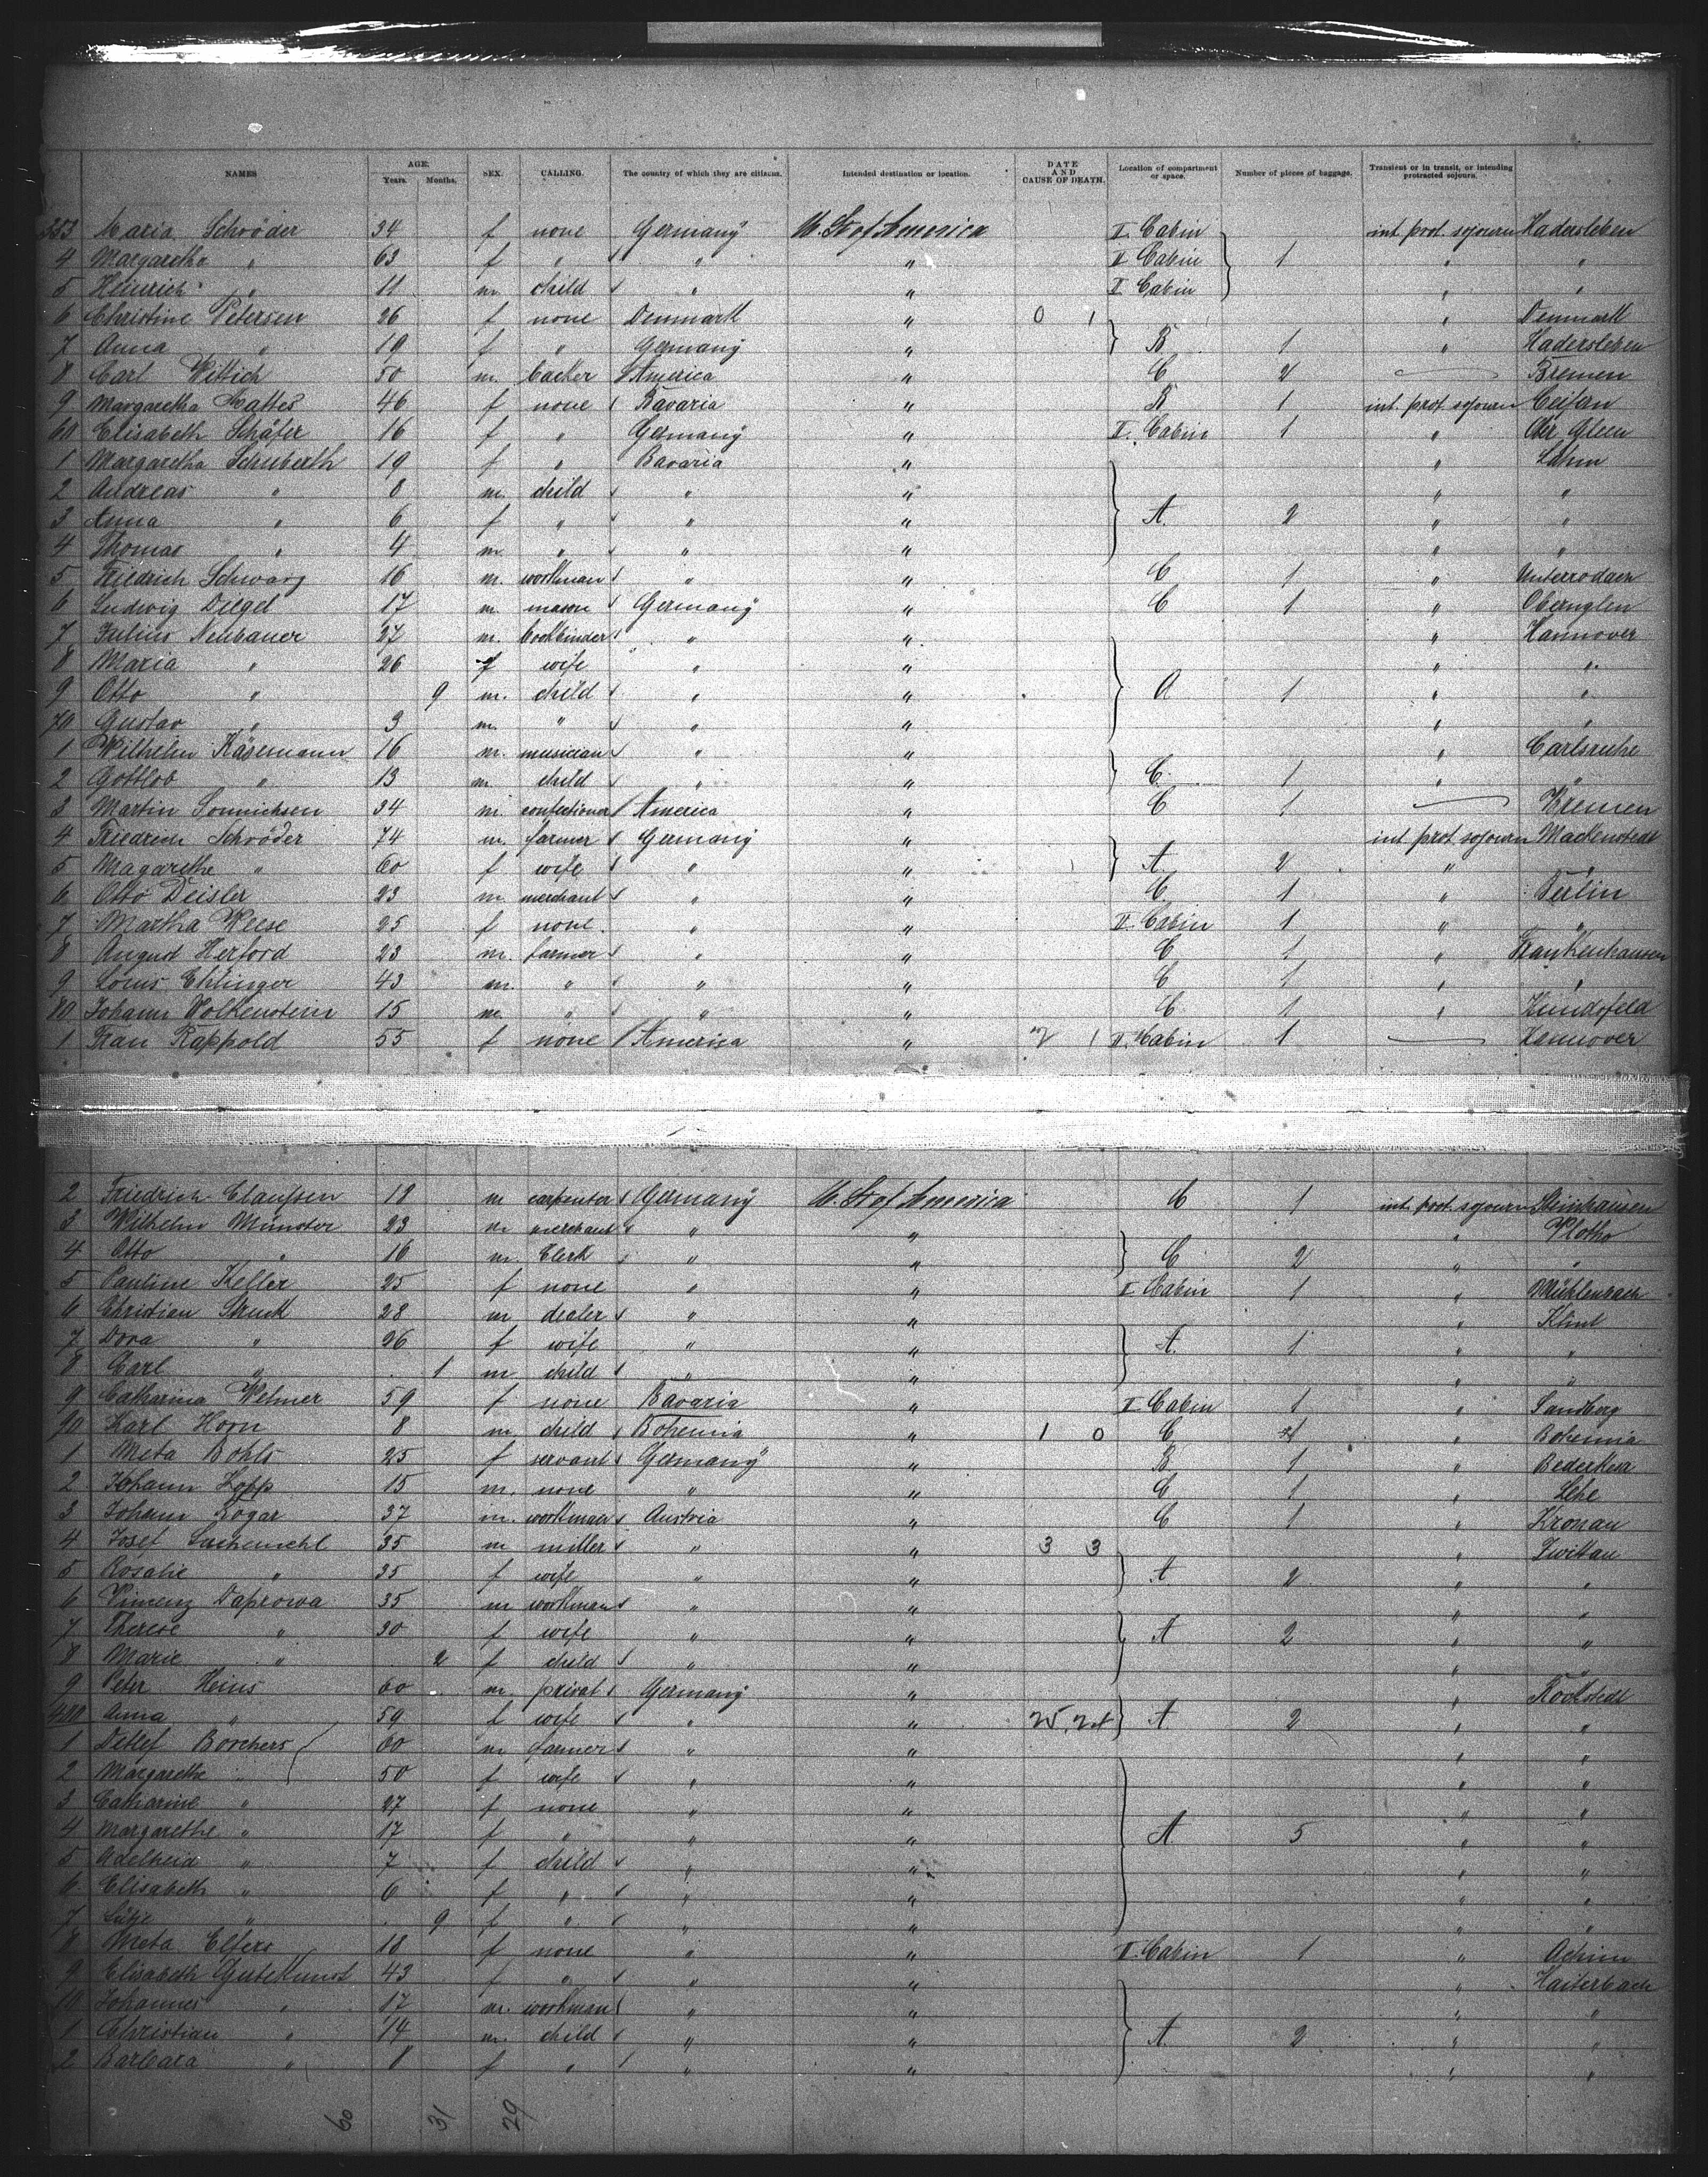 NAMES AGE. Years. Months. SEX. CALLING. The country of which they are citizens. Intended destination or location. DATE AND CAUSE OF DEATH. Location of compartment or space. Number of pieces of baggage. Transient or in transit, or intending protracted sojourn.
353 Maria Schröder 34 f none Germany U. St of America II Cabin int. prot. sojourn Hadersleben
4 Margaretha " 63 f " " " II Cabin 1 " "
5 Heinrich " 11 m. child " " II Cabin " "
6 Christine Petersen 26 f none Denmark " 0 1 " Denmark
7 Anna " 19 f " Germany " B 1 " Hadersleben
8 Carl Wittich 50 m. backer America " C 2 — Bremen
9 Margaretha Mattes 46 f none Bavaria " B 1 int. prot. sojourn
60 Elisabeth Schäfer 16 f " Germany " II. Cabin 1 " Ober Gleen
1 Margaretha Schuberth 19 f " Bavaria " " Lahm
2 Andreas " 8 m. child " " " "
3 Anna " 6 f " " " A. 2 " "
4 Thomas " 4 m " " " " "
5 Friedrich Schwarz 16 m. workman " " C 1 " Unterrodach
6 Ludwig Diegel 17 m mason Germany " C 1 " Oberuglen
7 Julius Neubauer 27 m. bookbinder " " " Hannover
8 Maria " 26 f wife " " " "
9 Otto " 9 m. child " " A 1 " "
70 Gustav " 3 m " " " " "
1 Wilhelm Käsemann 16 m. musician " " " Carlsruhe
2 Gottlob " 13 m child " " C. 1 " "
3 Martin Sonnichsen 34 m. confectioner America " C 1 — Bremen
4 Friedrich Schröder 74 m. farmer Germany " int prot sojourn Mackenstedt
5 Magarethe " 60 f wife " " A. 2 " "
6 Otto Deisler 23 m. merchant " " C 1 " Berlin
7 Martha Weese 25 f none. " " II. Cabin 1 " "
8 August Herford 23 m. farmer " " C 1 " Frankenhausen
9 Louis Ehlinger 43 m. " " " C 1 " "
80 Johann Wolkenstein 15 m " " " C 1 " Hundsfeld
1 Frau Rappold 55 f none America " 2 1 II. Cabin 1 — Hannover
2 Friedrich Claussen 18 m carpenter Germany U. St of America C 1 int. prot. sojourn Steinhausen
3 Wilhelm Münster 23 m merchant " " " Vlotho
4 Otto " 16 m Clerk " " C 2 " "
5 Pauline Keller 25 f none " " II Cabin 1 " Mühlenbach
6 Christian Struck 28 m dealer " " " Klint
7 Dora " 26 f wife " " A. 1 " "
8 Carl " 1 m child " " " "
9 Catharina Welmer 59 f none Bavaria " II Cabin 1 " Sandberg
90 Karl Horn 8 m child Bohemia " 1 0 C 1 " Bohemia
1 Meta Bohls 25 f servant Germany " B 1 " Bederkesa
2 Johann Hopp 15 m. none " " C 1 " Lehe
3 Johann Rogar 37 m. workman Austria " C 1 " Kronau
4 Josef 35 m miller " " 3 3 " Zwittau
5 Rosalie " 35 f wife " " A. 2 " "
6 Vincenz Daprowa 35 m workman " " " "
7 Therese " 30 f wife " " A 2 " "
8 Marie " 2 f child " " " "
9 Peter Heins 60 m privat Germany " " Kockstedt
400 Anna " 59 f wife " " 25, 24 A 2 " "
1 Detlef Borchers 60 m farmer " " " "
2 Margarethe " 50 f wife " " " "
3 Catharine " 27 f none " " " "
4 Margarethe " 17 f " " " A 5 " "
5 Adelheid " 7 f child " " " "
6 Elisabeth " 6 f " " " " "
7 Lütje " 9 f " " " " "
8 Meta Elfers 18 f none " " II. Cabin 1 " Achim
9 Elisabeth Gutekunst 43 f " " " " Haiterbach
10 Johannes " 17 m. workman " " " "
1 Christian " 14 m. child " " A. 2 " "
2 Barbara " 8 f " " " " "
60 31 29